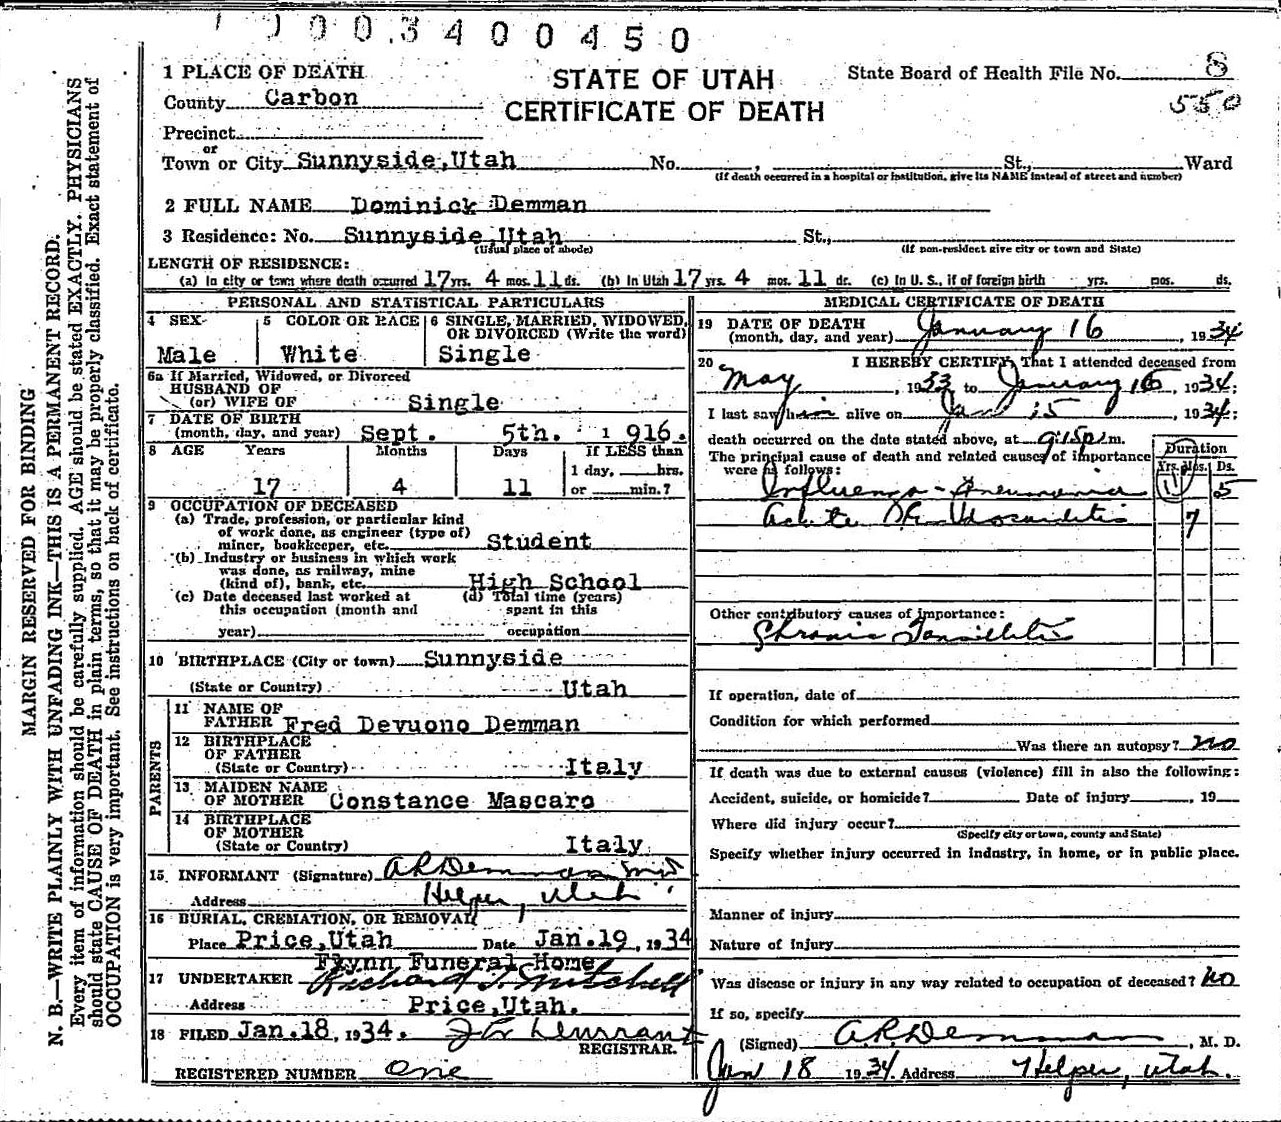 0003400450
1 PLACE OF DEATH
STATE OF UTAH
CERTIFICATE OF DEATH
State Board of Health File No. 8
550
County Carbon
Precinct
or
Town or City Sunnyside,Utah No. , St., Ward
(If death occurred in a hospital or institution, give its NAME instead of street and number)
2 FULL NAME Dominick Demman
3 Residence: No. Sunnyside,Utah St.,
(Usual place of abode) (If non-resident give city or town and State)
LENGTH OF RESIDENCE:
(a) In city or town where death occurred 17 yrs. 4 mos. 11 ds. (b) In Utah 17 yrs. 4 mos. 11 ds. (c) In U. S., if of foreign birth yrs. mos. ds.
PERSONAL AND STATISTICAL PARTICULARS
4 SEX
Male
5 COLOR OR RACE
White
6 SINGLE, MARRIED, WIDOWED,
OR DIVORCED (Write the word)
Single
6a If Married, Widowed, or Divorced
HUSBAND OF
(or) WIFE OF Single
7 DATE OF BIRTH
(month, day, and year) Sept. 5th. 1916.
8 AGE Years Months Days If LESS than
1 day, hrs.
17 4 11 or min.?
9 OCCUPATION OF DECEASED
(a) Trade, profession, or particular kind
of work done, as engineer (type of)
miner, bookkeeper, etc. Student
(b) Industry or business in which work
was done, as railway, mine
(kind of), bank, etc. High School
(c) Date deceased last worked at
this occupation (month and
year)
(d) Total time (years)
spent in this
occupation
10 BIRTHPLACE (City or town) Sunnyside
(State or Country) Utah
PARENTS
11 NAME OF
FATHER Fred Devuono Demman
12 BIRTHPLACE
OF FATHER
(State or Country) Italy
13 MAIDEN NAME
OF MOTHER Constance Mascaro
14 BIRTHPLACE
OF MOTHER
(State or Country) Italy
15 INFORMANT (Signature) A R Demman MD
Address Helper, Utah
16 BURIAL, CREMATION, OR REMOVAL
Place Price,Utah Date Jan.19, 1934
Flynn Funeral Home
17 UNDERTAKER Richard T. Mitchell
Address Price,Utah.
18 FILED Jan.18, 1934.
REGISTRAR.
REGISTERED NUMBER one
MEDICAL CERTIFICATE OF DEATH
19 DATE OF DEATH
(month, day, and year) January 16, 1934
20 I HEREBY CERTIFY, That I attended deceased from
May, 1933 to January 16, 1934;
I last saw him alive on Jan 15, 1934;
death occurred on the date stated above, at 9:15 p. m.
The principal cause of death and related causes of importance
were as follows:
Duration
Yrs. Mos. Ds.
Influenza - Pneumonia 5
Acute Myocarditis 7
Other contributory causes of importance:
Chronic Tonsillitis
If operation, date of
Condition for which performed
Was there an autopsy? no
If death was due to external causes (violence) fill in also the following:
Accident, suicide, or homicide? Date of injury , 19
Where did injury occur?
(Specify city or town, county and State)
Specify whether injury occurred in industry, in home, or in public place.
Manner of injury
Nature of injury
Was disease or injury in any way related to occupation of deceased? No
If so, specify
(Signed) A.R. Demman, M. D.
Jan 18 1934 Address Helper, Utah.
MARGIN RESERVED FOR BINDING
N. B.—WRITE PLAINLY WITH UNFADING INK—THIS IS A PERMANENT RECORD.
Every item of information should be carefully supplied. AGE should be stated EXACTLY. PHYSICIANS
should state CAUSE OF DEATH in plain terms, so that it may be properly classified. Exact statement of
OCCUPATION is very important. See instructions on back of certificate.